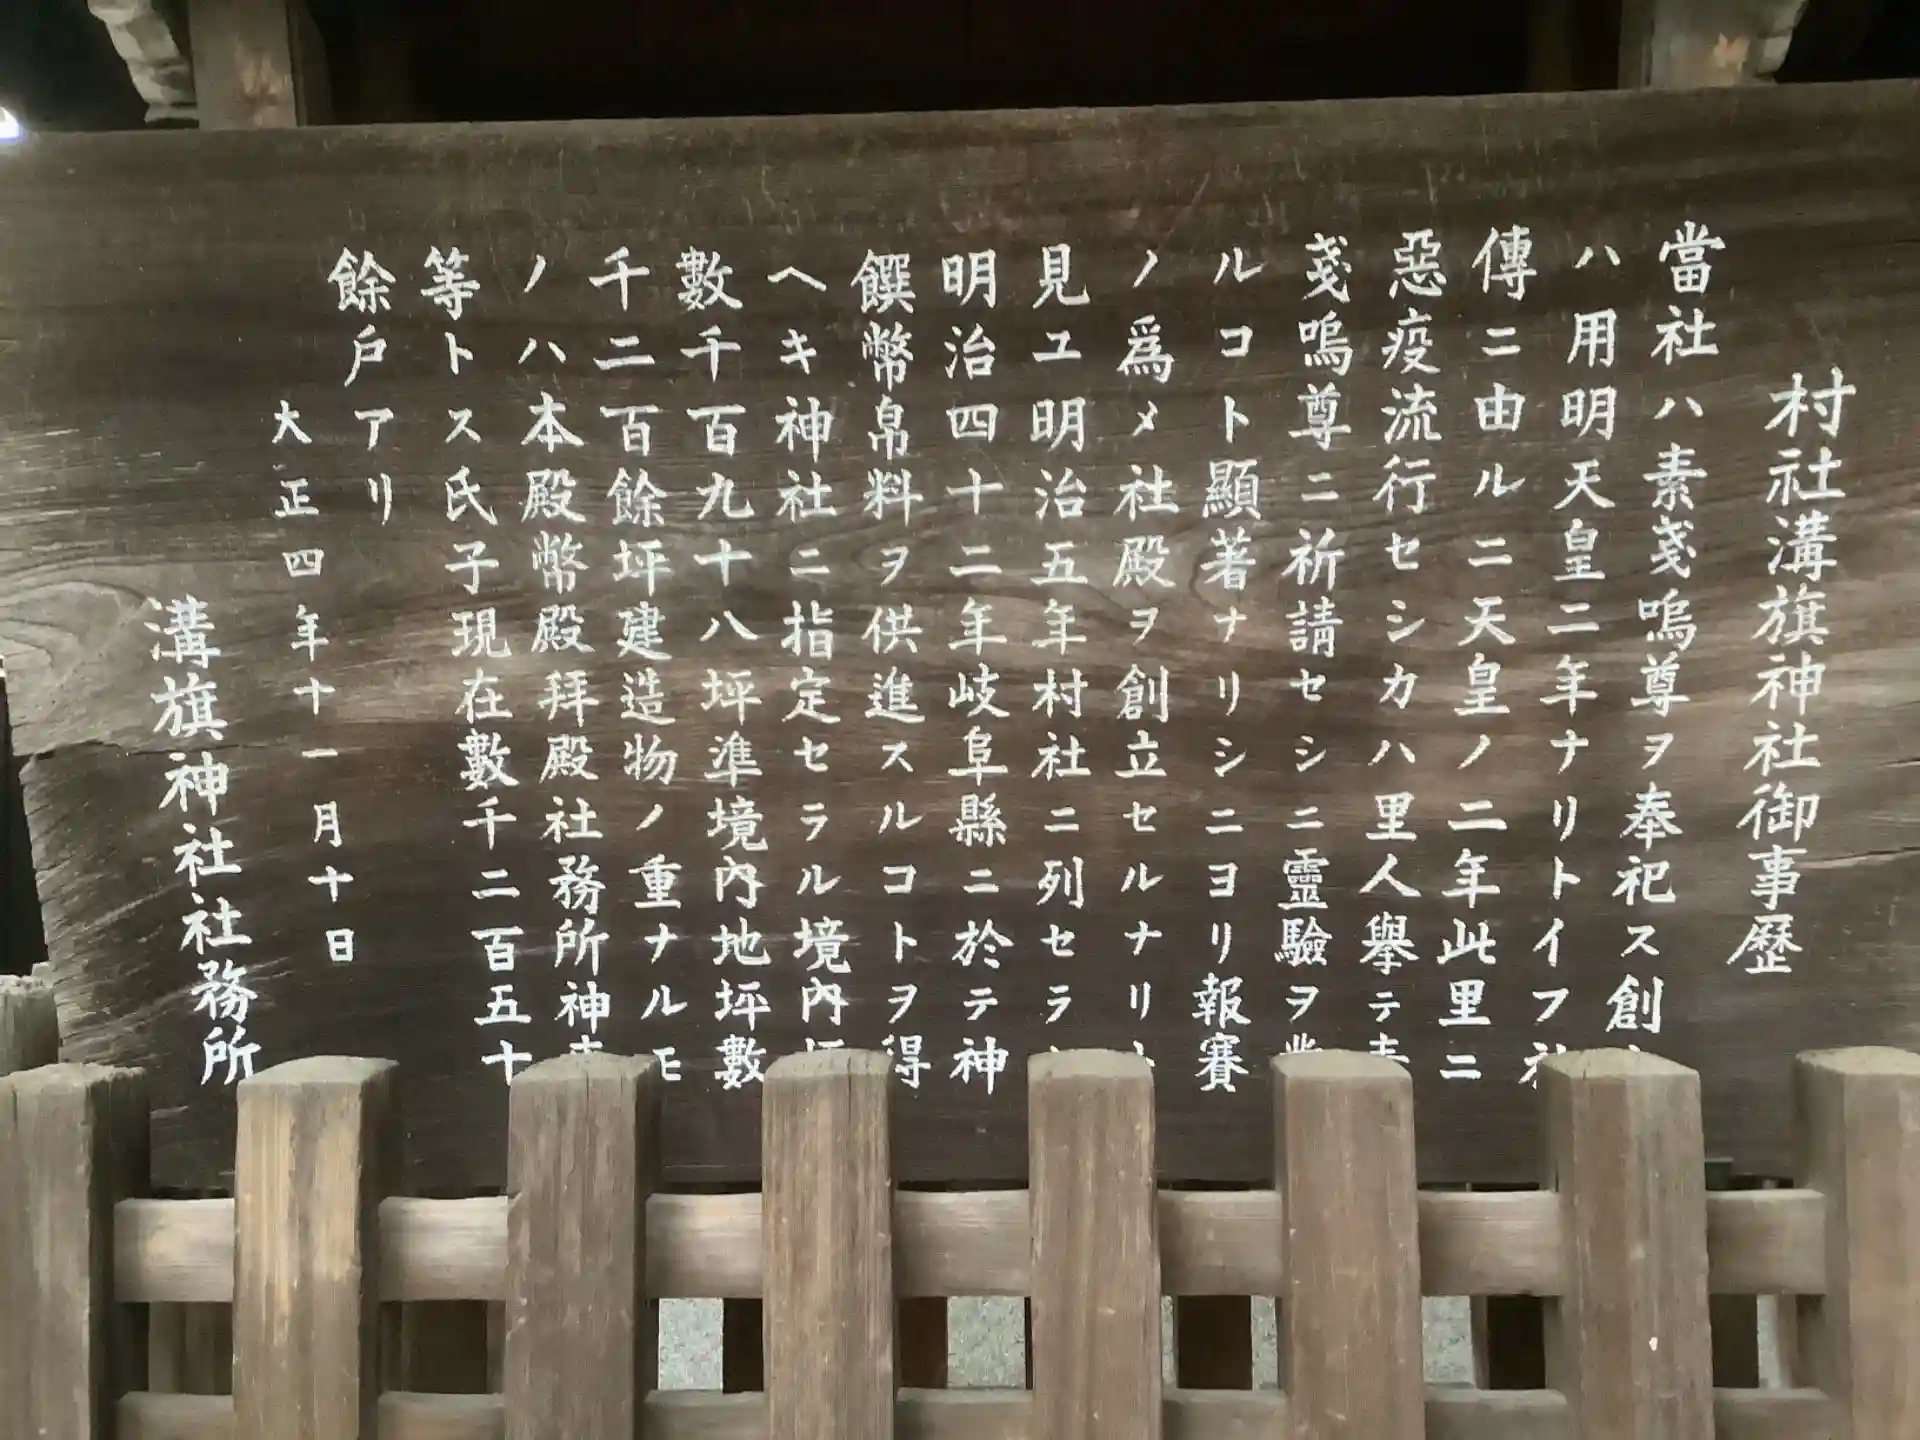 村社溝旗神社御事歴
當社ハ素戔嗚尊ヲ奉祀ス創
ハ用明天皇二年ナリトイフ社
傳ニ由ルニ天皇ノ二年此里ニ
惡疫流行セシカハ里人擧テ素
戔嗚尊ニ祈請セシニ靈驗ヲ
ルコト顯著ナリシニヨリ報賽
ノ爲メ社殿ヲ創立セルナリ
見ユ明治五年村社ニ列セラ
明治四十二年岐阜縣ニ於テ神
饌幣帛料ヲ供進スルコトヲ得
ヘキ神社ニ指定セラル境內坪
數千百九十八坪準境內地坪數
千二百餘坪建造物ノ重ナルモ
ノハ本殿幣殿拜殿社務所神
等トス氏子現在數千二百五十
餘戶アリ
大正四年十一月十日
溝旗神社社務所